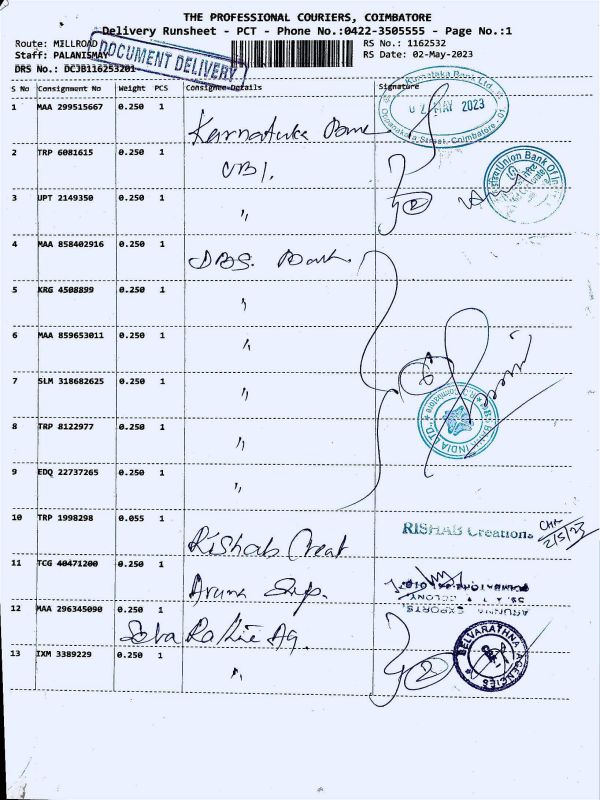 THE PROFESSIONAL COURIERS, COIMBATORE
Delivery Runsheet - PCT - Phone No.:0422-3505555 - Page No.:1
Route: MILLROAD
RS No.: 1162532
Staff: PALANISMAY
RS Date: 02-May-2023
DRS No.: DCJB116253201
DOCUMENT DELIVERY
S No Consignment No Weight PCS Consignee Details Signature
1 MAA 299515667 0.250 1
Karnataka Bank Ltd.
02 MAY 2023
Street, Coimbatore - 01
2 TRP 6081615 0.250 1 UBI.
Union Bank Of
3 UPT 2149350 0.250 1 "
2
4 MAA 858402916 0.250 1 DBS. Bank
5 KRG 4508899 0.250 1 "
6 MAA 859653011 0.250 1 "
6
7 SLM 318682625 0.250 1 "
DBS BANK INDIA LTD.,
8 TRP 8122977 0.250 1 "
9 EDQ 22737265 0.250 1 "
10 TRP 1998298 0.055 1 Rishab Creat
RISHAB Creations
2/5/23
11 TCG 40471200 0.250 1 Aruna Exp.
COIMBATORE
COLONY
EXPORTS,
12 MAA 296345090 0.250 1
13 IXM 3389229 0.250 1 "
2
SELVARATHNA AGENCIES